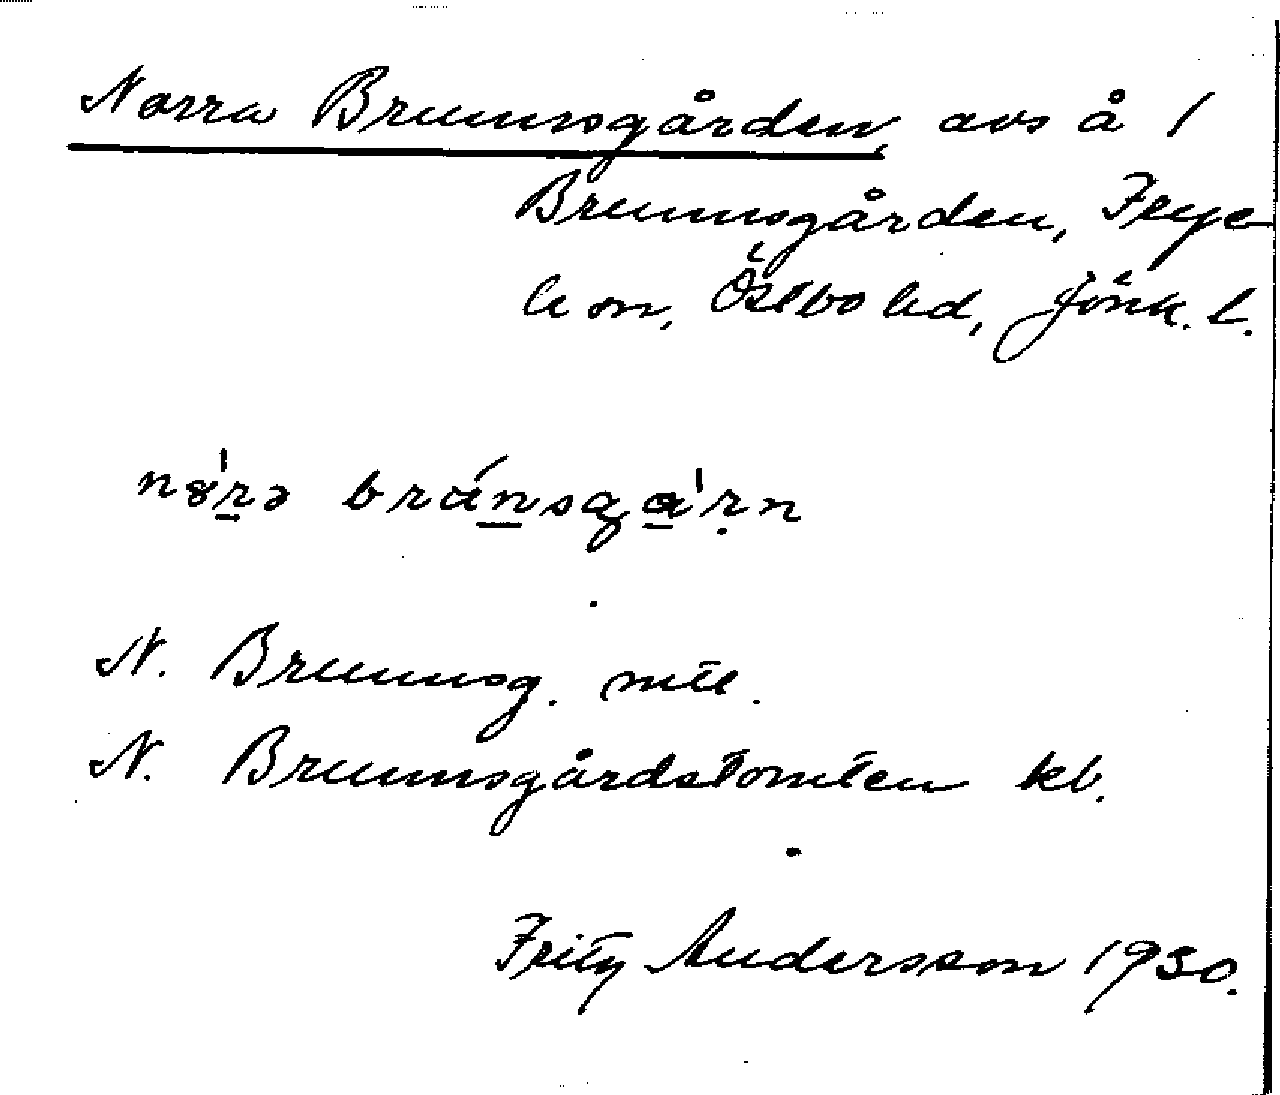 Norra Brunnsgården, avs å 1
Brunnsgården, Frye
le sn, Östbo hd, Jönk. l.
nɷ̍rə bránsga̍rn
N. Brunnsg. mtl.
N. Brunnsgårdstomten kb.
Fritz Andersson 1930.